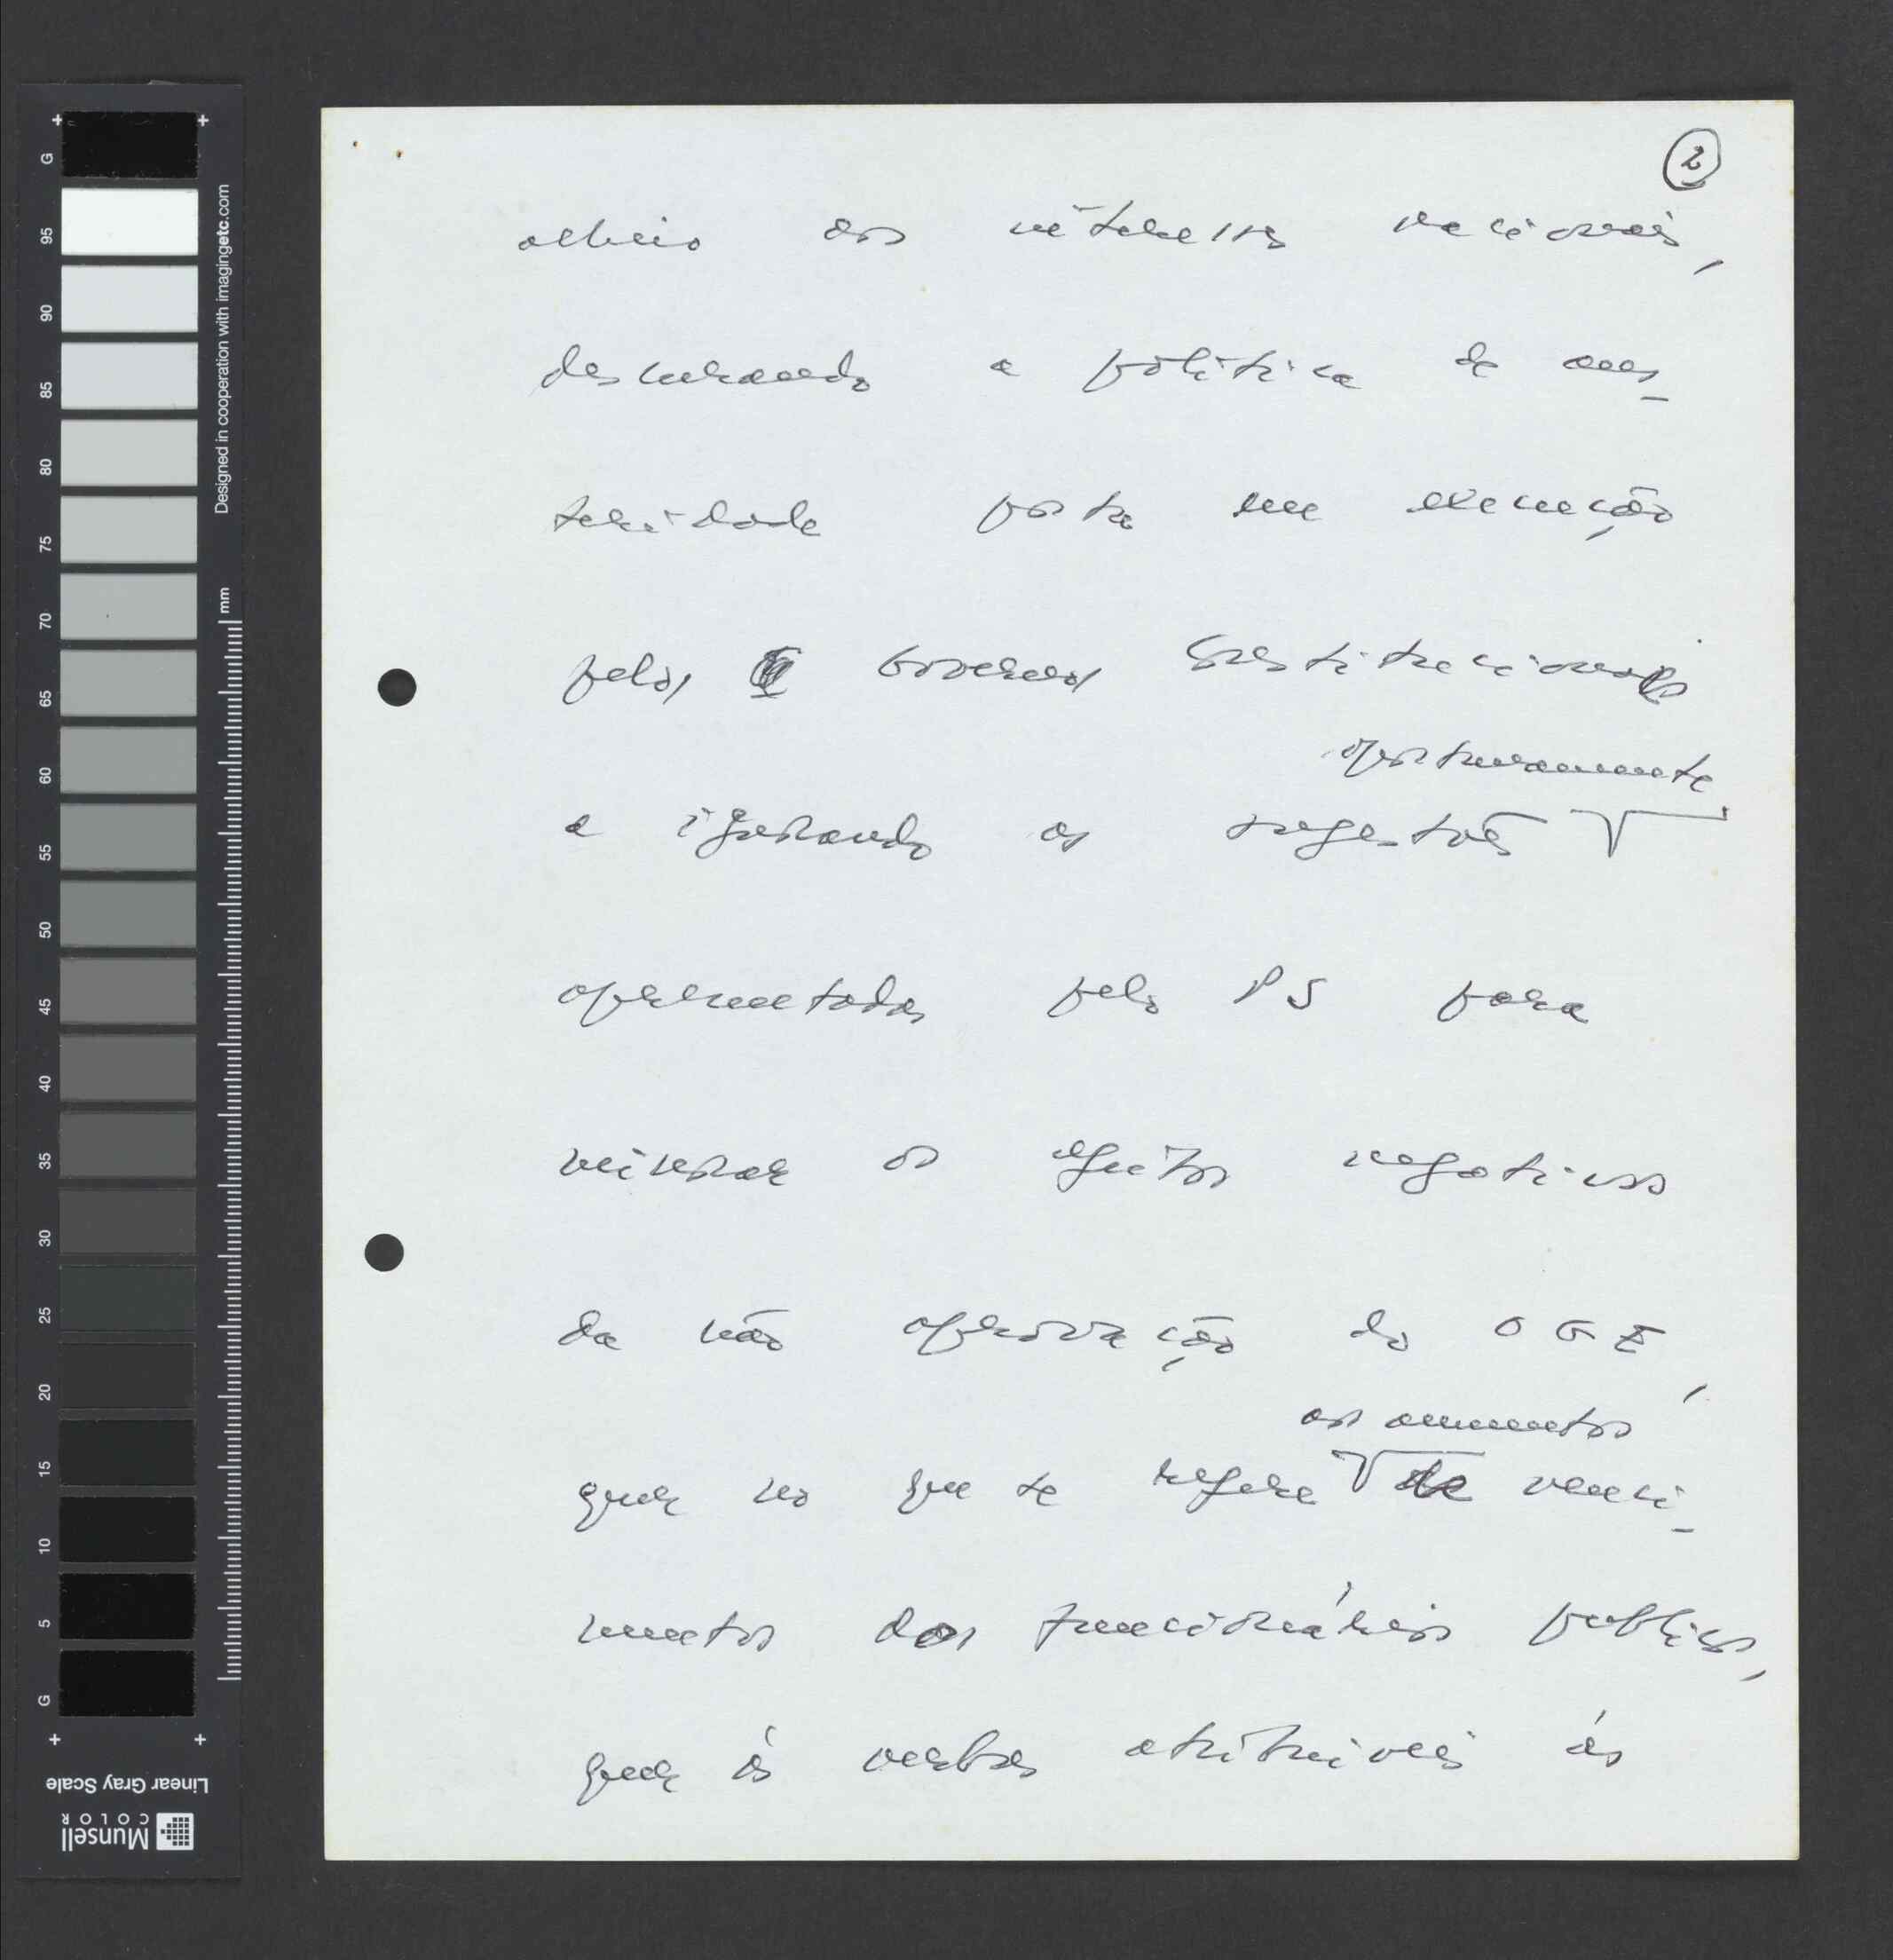 2
alheio aos interesses nacionais,
descurando a política de aus-
teridade posta em execução
pelos Governos Constitucionais
oportunamente
e ignorando as sugestões
apresentadas pelo PS para
minorar os efeitos negativos
da não aprovação do OGE,
aos aumentos
quer no que se refere de venci-
mentos dos funcionários publicos,
quer às verbas atribuíveis às
G 95 90 85 80 75 70 65 60 55 50 45 40 35 30 25 20 15 10 5 G
Designed in cooperation with imagingetc.com
mm
Linear Gray Scale
Munsell
COLOR